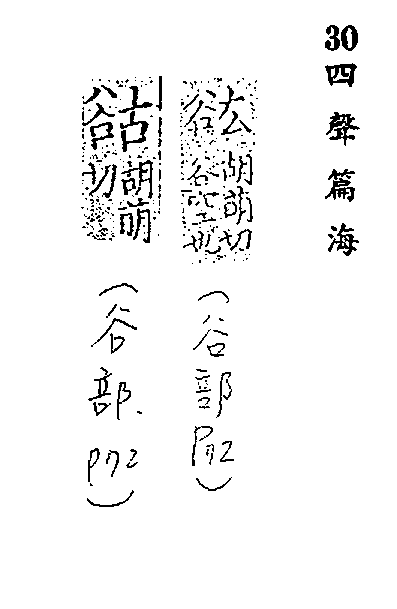 30
四聲篇海
谹
胡萌切
谷空也
(谷部
P72)
胡萌
切
(谷部.
P72)